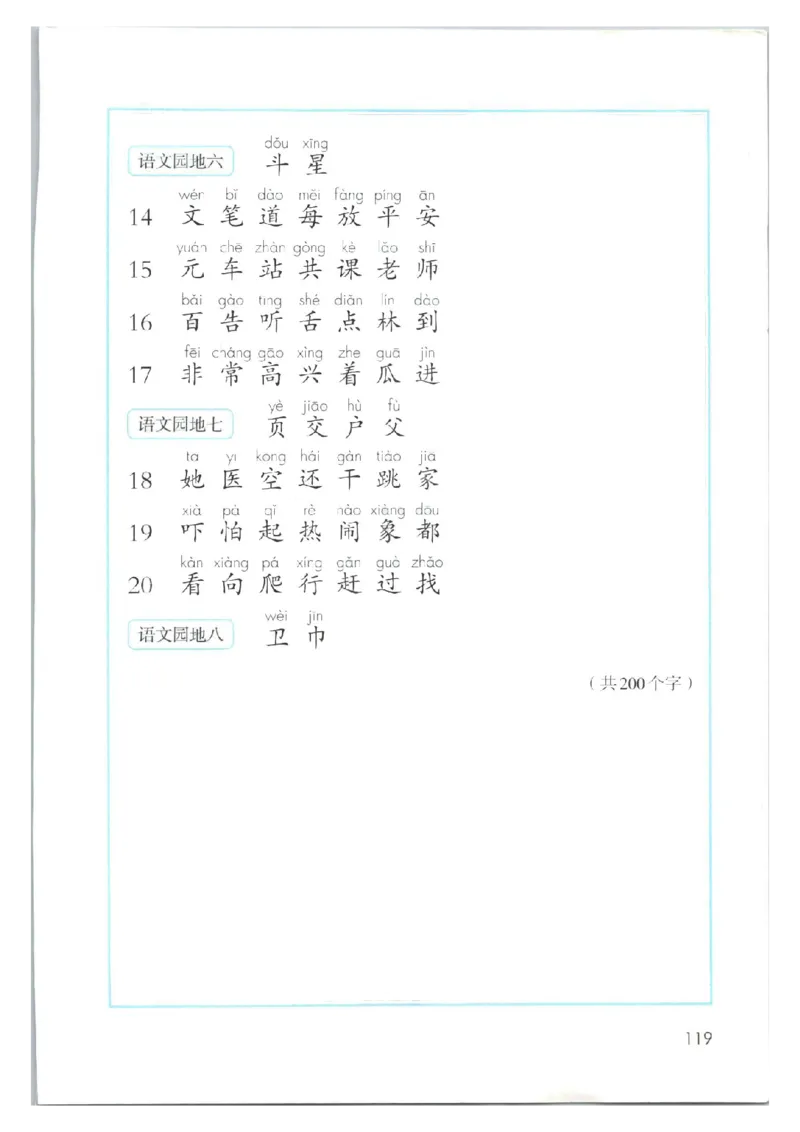 dǒu xīng
语文园地六 斗 星
wén bǐ dào měi fàng píng ān
14 文 笔 道 每 放 平 安
yuán chē zhàn gòng kè lǎo shī
15 元 车 站 共 课 老 师
bǎi gào tīng shé diǎn lín dào
16 百 告 听 舌 点 林 到
fēi cháng gāo xìng zhe guā jìn
17 非 常 高 兴 着 瓜 进
yè jiāo hù fù
语文园地七 页 交 户 父
tā yī kōng hái gàn tiào jiā
18 她 医 空 还 干 跳 家
xià pà qǐ rè nào xiàng dōu
19 吓 怕 起 热 闹 象 都
kàn xiàng pá xíng gǎn guò zhǎo
20 看 向 爬 行 赶 过 找
wèi jīn
语文园地八 卫 巾
（共200个字）
119